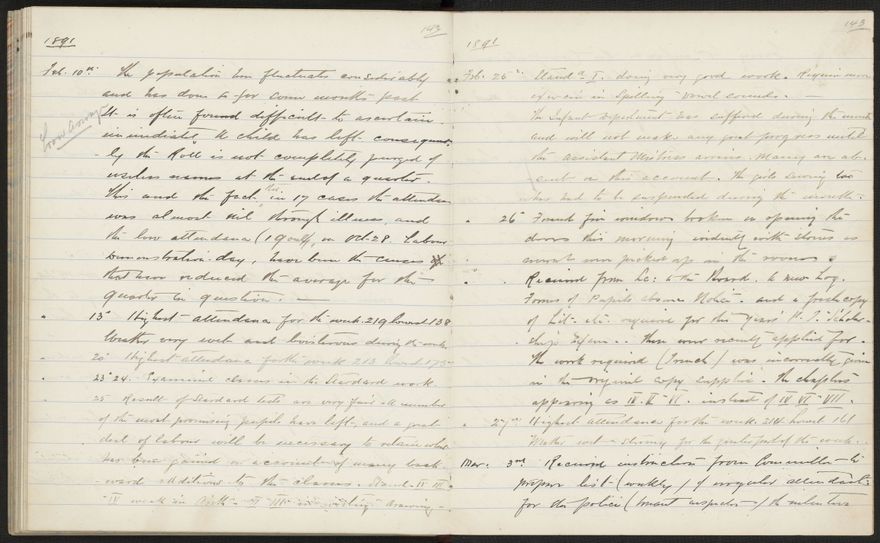 143
1891
Feb. 10th The population here fluctuates considerably
and has done so for some months past
It is often found difficult to ascertain
immediately a child has left consequent-
ly the Roll is not completely purged of
useless names at the end of a quarter.
This and the fact, this in 17 cases the attendance
was almost nil through illness, and
the low attendance (19 only) on Oct. 28 Labour
Demonstration day, have been the causes
that have reduced the average for the
quarter in question. —
" 13" Highest attendance for the week 219 lowest 138
Weather very wet and boisterous during the week
" 20" Highest attendance for the week 213 lowest 175
" 23" 24. Examined classes in the Standard work.
" 25 Result of Standard tests are very fair. A number
of the most promising pupils have left, and a great
deal of labour will be necessary to retain what
has been gained on account of many back-
ward additions to the classes. Stand. IV III
IV weak in Arith. VI VII in writing Drawing
143
1891
Feb. 25" Stand. I. doing very good work. Require more
exercise in Spelling vowel sounds. —
The Infant department has suffered during the month
and will not make any great progress until
the assistant Mistress arrives. Many are ab-
sent on this account. The girls sewing too
has had to be suspended during the month.
" 26" Found five windows broken on opening the
doors this morning evidently with stones as
several were picked up in the rooms.
" Received from Sec: to the Board, a new Log,
Forms of Pupils absence Notice. and a fresh copy
of Lit. etc. required for this years P. T. Scholar-
ship Exam. . These were recently applied for.
The work required (French) was incorrectly given
in the original copy supplied. The chapters
appearing as IV. V VI. instead of IV VI VII.
" 27th Highest attendance for the week. 214 lowest 161
Weather wet & stormy for the greater part of the week.
Mar: 3rd Received instruction from Committee to
prepare list (weekly) of irregular attendants
for the police (truant inspector) the intention